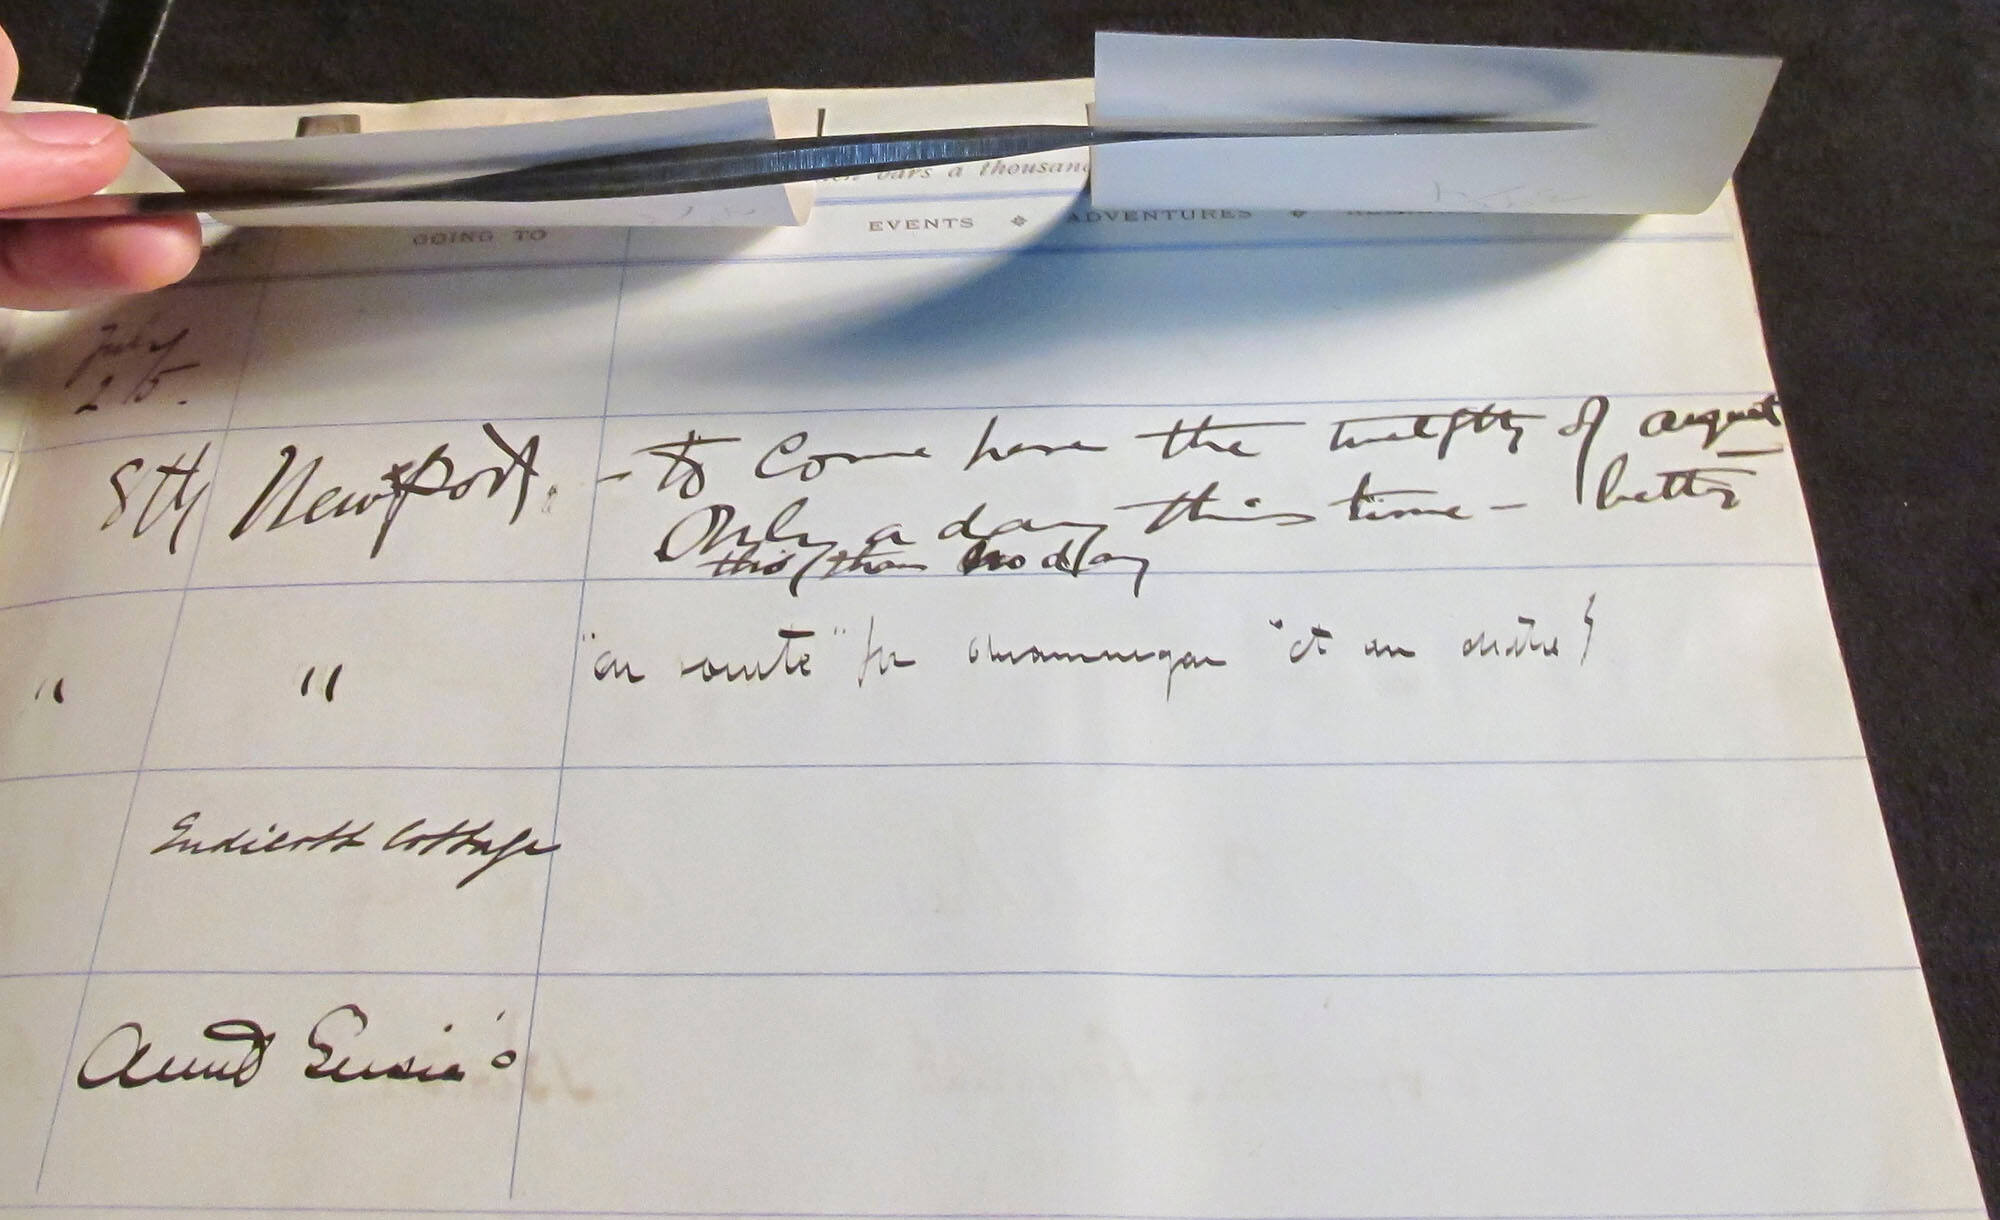 bars a thousand
GOING TO EVENTS ADVENTURES
July
25.
8th Newport. - To come here the twelfth of august
Only a day this time - better
this than no day
" " "en route" for
Endicott Cottage
Aunt Susie's